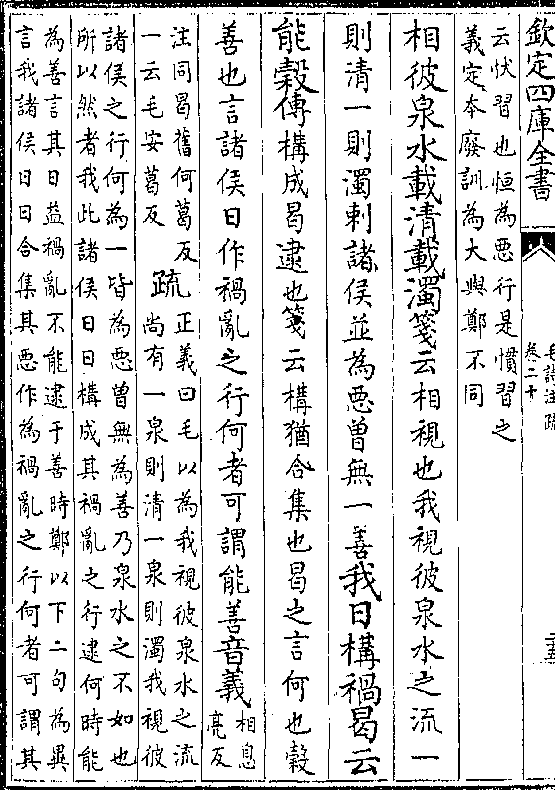 欽定四庫全書
毛詩注疏
卷二十
二五
云忕習也恒為惡行是慣習之
義定本廢訓為大與鄭不同
相彼泉水載清載濁箋云相視也我視彼泉水之流一
則清一則濁刺諸侯並為惡曽無一善我日構禍曷云
能榖傳構成曷逮也箋云構猶合集也曷之言何也榖
善也言諸侯日作禍亂之行何者可謂能善音義
相息
亮反
注同曷舊何葛反
一云毛安葛反
疏
正義曰毛以為我視彼泉水之流
尚有一泉則清一泉則濁我視彼
諸侯之行何為一皆為惡曽無為善乃泉水之不如也
所以然者我此諸侯日日構成其禍亂之行逮何時能
為善言其日益禍亂不能逮于善時鄭以下二句為異
言我諸侯日日合集其惡作為禍亂之行何者可謂其